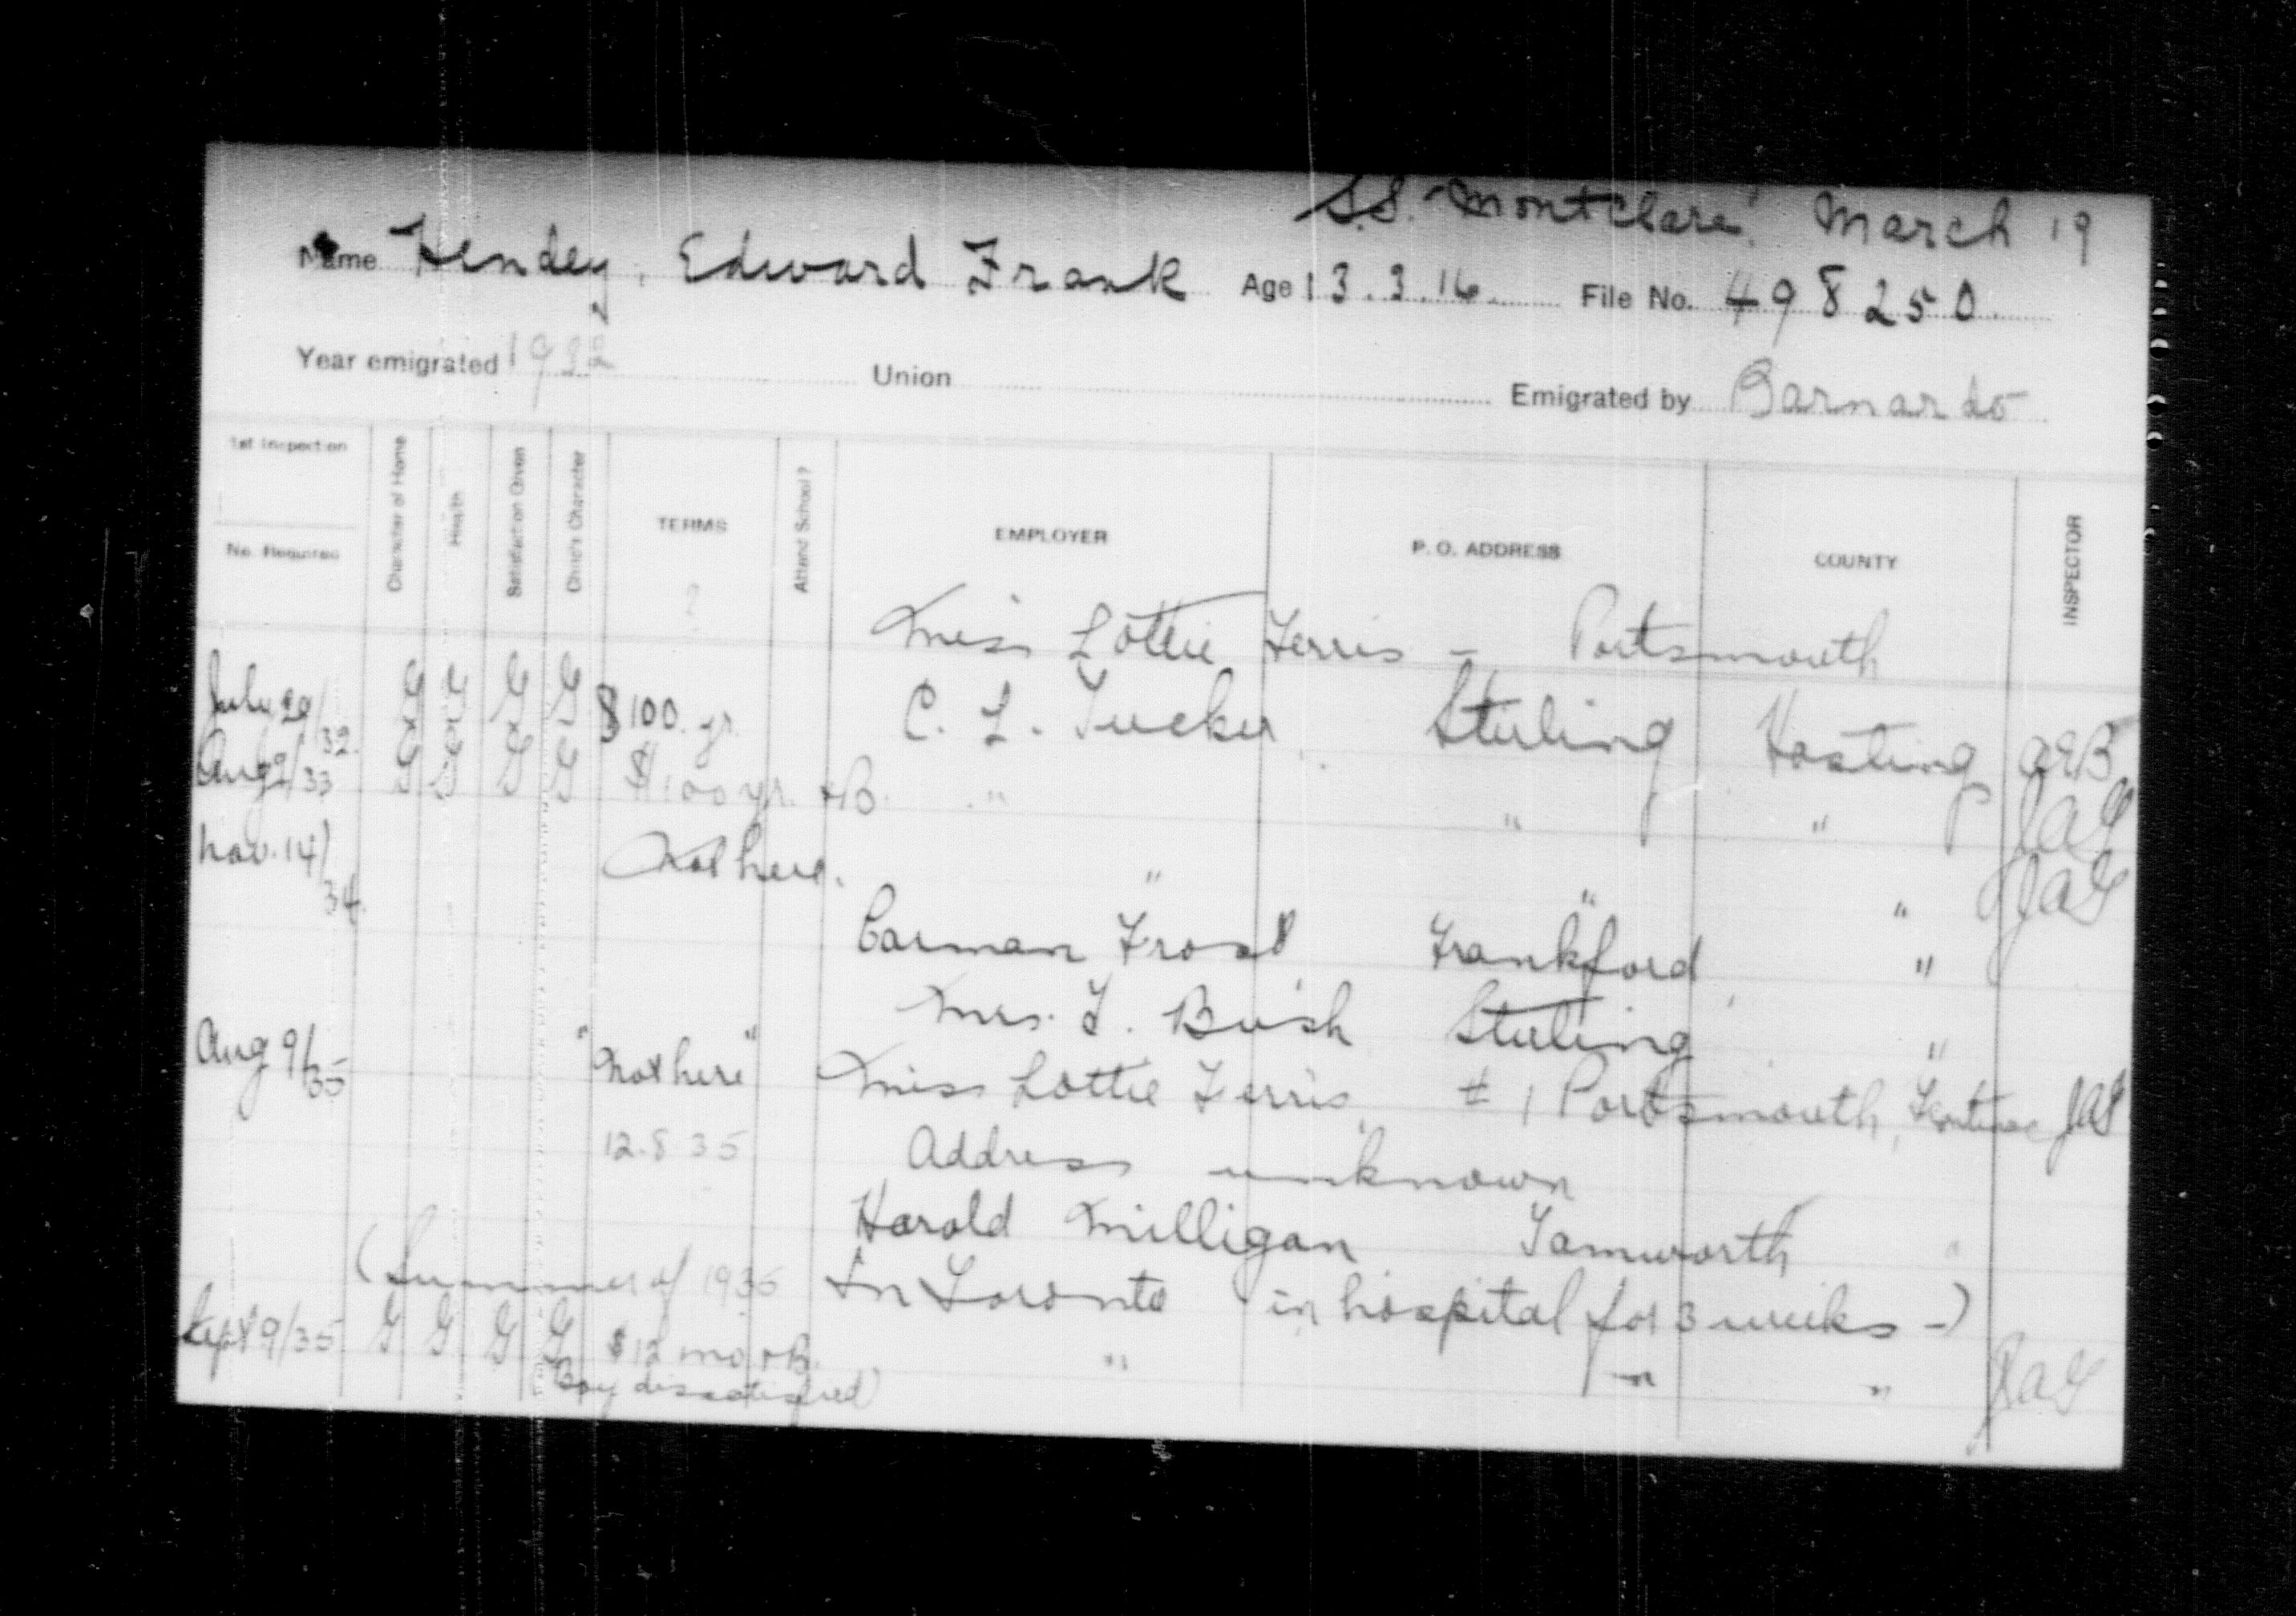 S.S. "Montclare". March 19
Name Hendey, Edward Frank Age 13.3.16 File No. 498250.
Year emigrated 1932 Union Emigrated by Barnardo
1st Inspection
No. Required
Character of Home
Health
Satisfaction Given
Child's Character
TERMS
Attend School?
EMPLOYER
P. O. ADDRESS
COUNTY
INSPECTOR
?
Miss Lottie Ferris - Portsmouth
July 29/32. G G G G $100. yr. C. L. Tucker Stirling Hastings
Aug 9/33 G G G G $100 yr. +B. " " " JAG
Nov. 14/34. Not here. " " " JAG
Carman Frost Frankford "
Mrs. F. Bush Stirling "
Aug 9/35 "Not here" Miss Lottie Ferris, #1 Portsmouth, Frontenac JAG
12.8.35 Address unknown
Harold Milligan Tamworth "
(Summer of 1935 In Toronto in hospital for 3 weeks -)
Sept 9/35 G G G G $12 mo. +B. " " " JAG
(Boy dissatisfied)